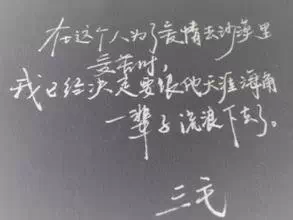 在这个人为了爱情去沙漠里
受苦时，
我已经决定要跟他天涯海角
一辈子流浪下去了。
三毛